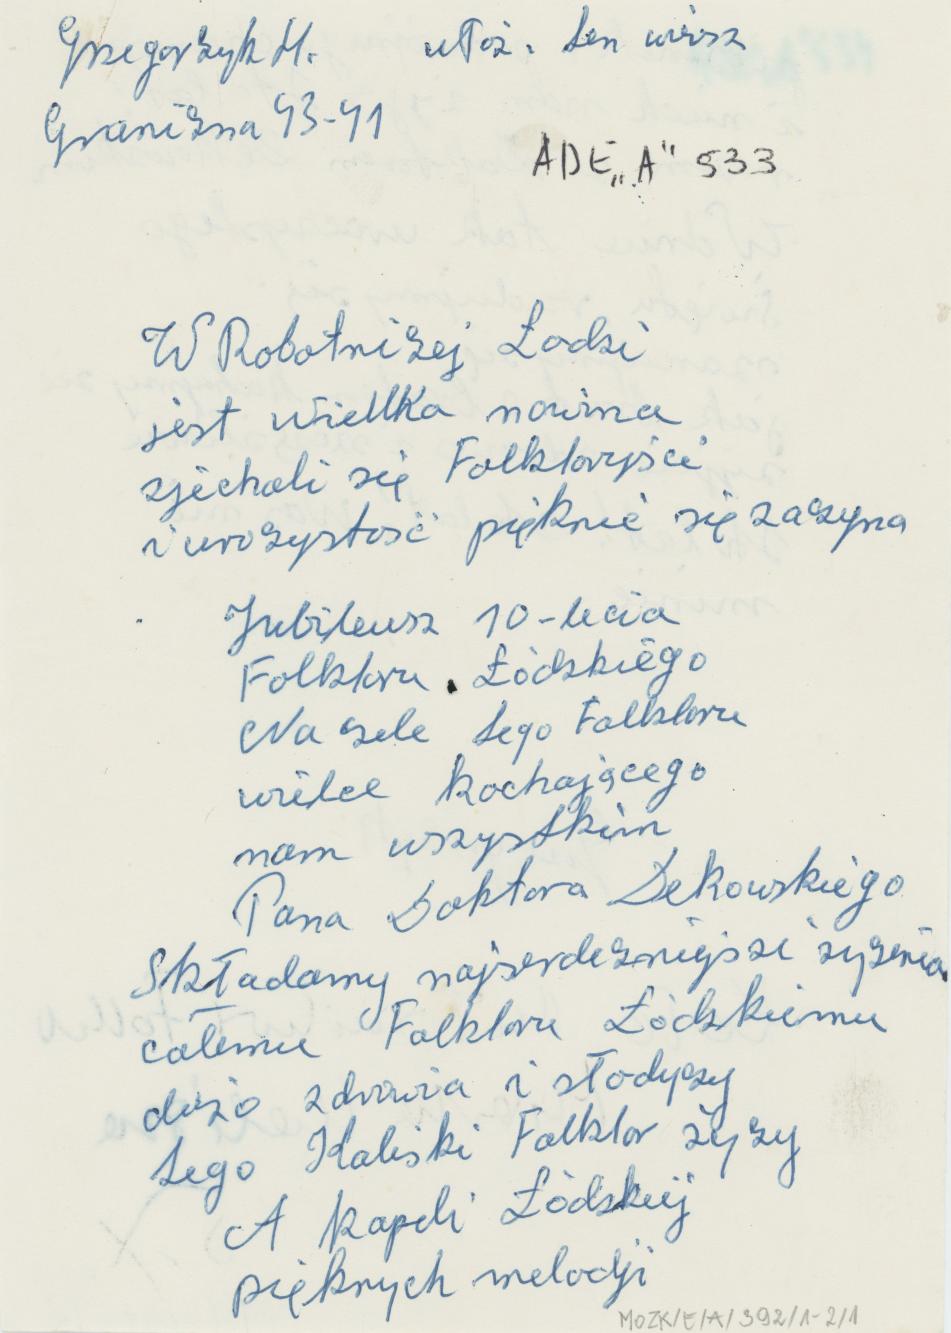 Grzegorzyk H. ułoż. ten wiersz
Graniczna 43-41
ADE „A" 533
W Robotniczej Łodzi
jest wielka nowina
zjechali się Folkloryści
i uroczystość pięknie się zaczyna
Jubileusz 10-lecia
Folkloru Łódzkiego
Na czele tego Folkloru
wielce kochającego
nam wszystkim
Pana Doktora Dekowskiego
Składamy najserdeczniejsze życzenia
całemu Folkloru Łódzkiemu
dużo zdrowia i słodyczy
tego Kaliski Folklor życzy
A kapeli Łódzkiej
pięknych melodji
MOZK/E/A/392/1-2/1